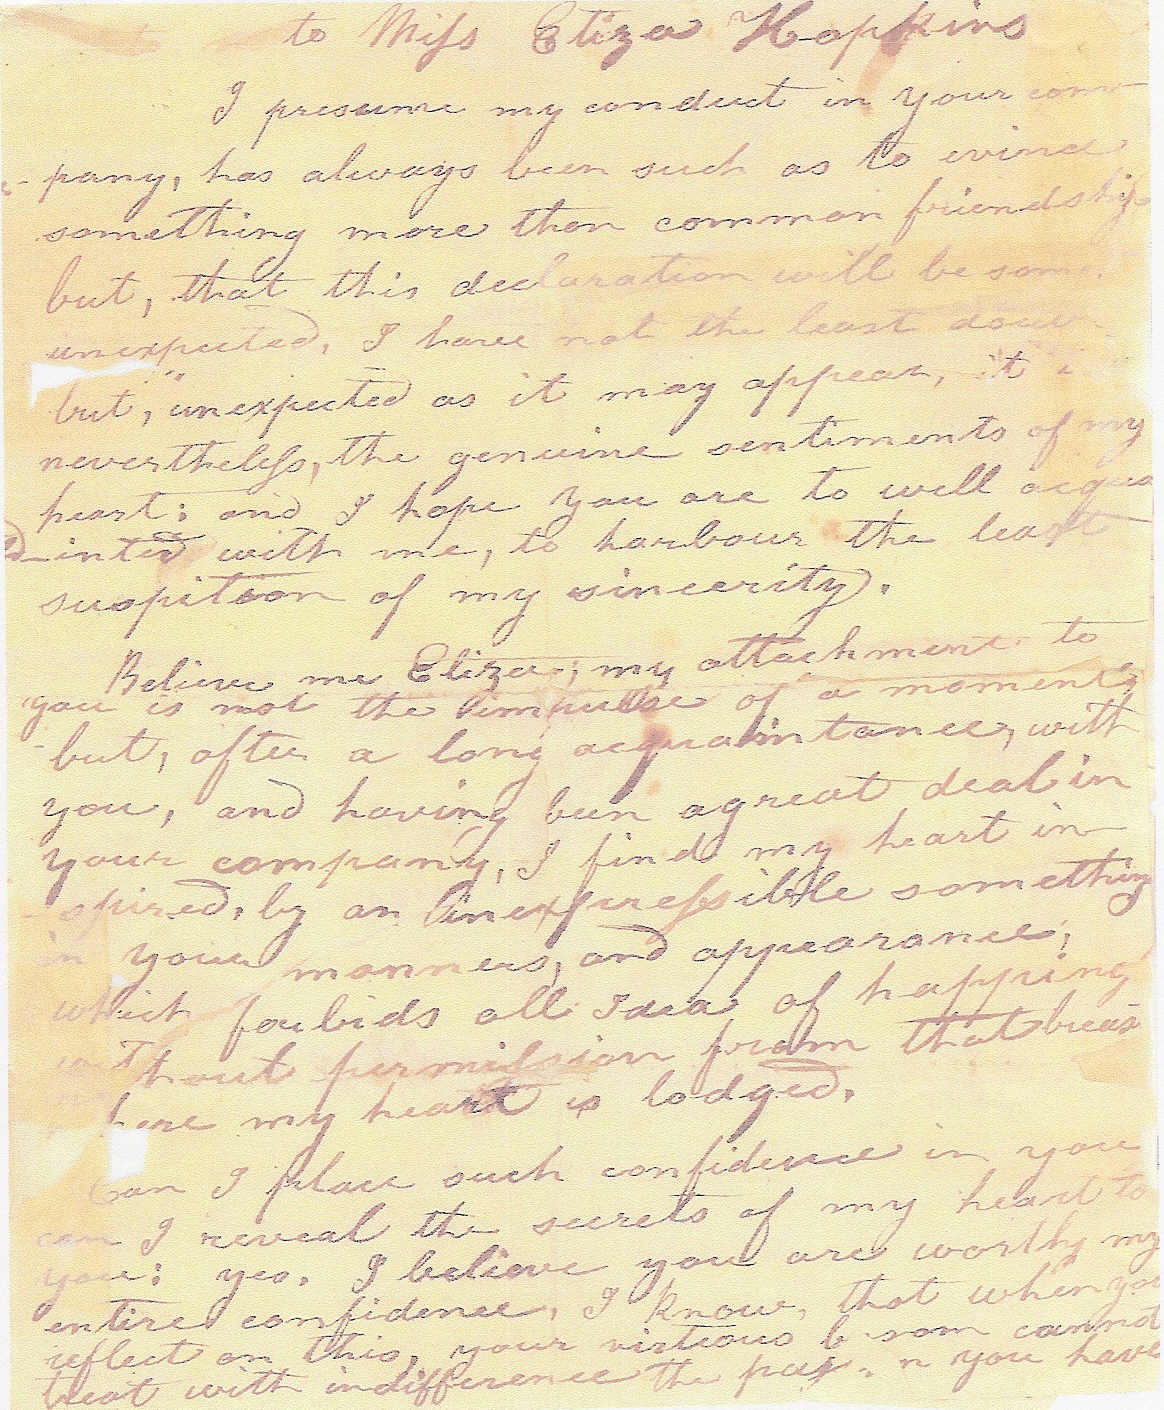 to Miss Eliza Hopkins
I presume my conduct in your com
pany, has always been such as to evince
something more than common friendship
but, that this declaration will be some
unexpected, I have not the least dou
but, unexpected as it may appear, it
nevertheless, the genuine sentiments of my
heart: and I hope you are to well acqua
inted with me, to harbour the least
suspition of my sincerity.
Believe me Eliza; my attachment to
you is not the impulse of a moment,
but, after a long acquaintance, with
you, and having been a great deal in
your company, I find my heart in
spired, by an inexpressible something
in your manners, and appearance;
which forbids all Idea of happing
without permission from that breas
where my heart is lodged.
Can I place such confidence in you
can I reveal the secrets of my heart to
you: yes. I believe you are worthy my
entire confidence, I know, that when you
reflect on this, your virtious bosom cannot
treat with indifference the you have